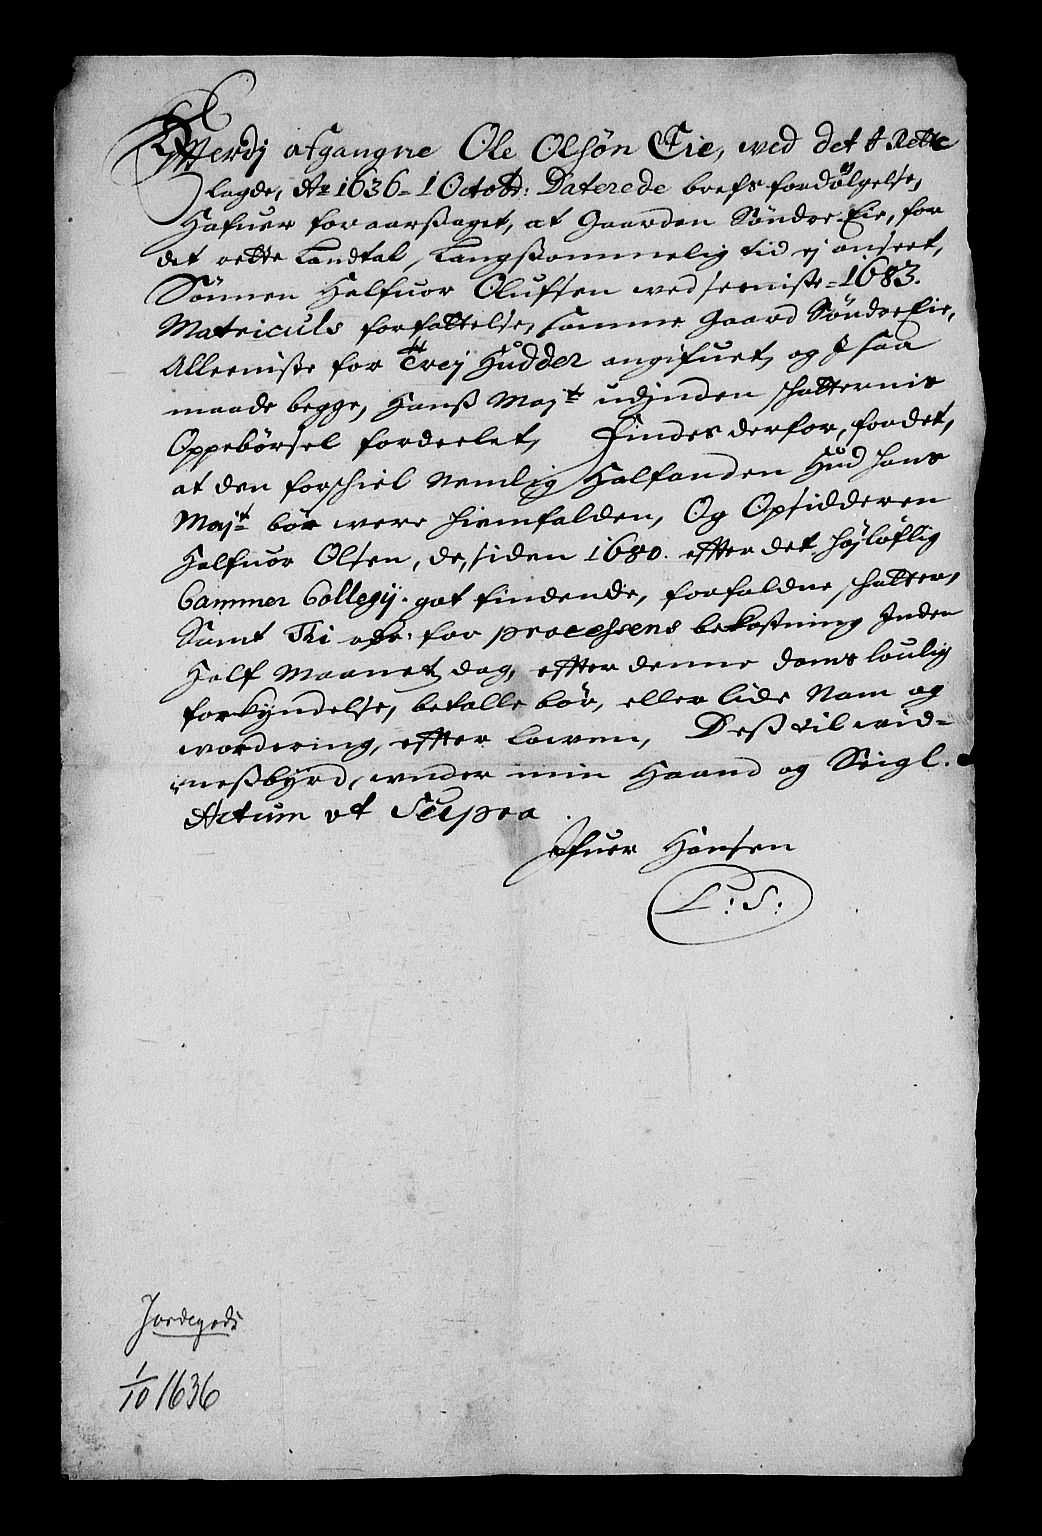 Hwerdj afgangne Ole Olsøn Eie, ved det J Rette
lagde, Ao 1636 = 1 Octob: Daterede brefs fordølgelse,
Hafuer foraarsaget, at Gaarden Søndre Eie, for
det rette Landtal, Langsommelig tid ej anseet,
Sønnen Halfuor Olufsen ved seeniste = 1683.
Matriculs forfattelse, samme Gaard Søndre Eie,
Alleeniste for Trej Hudder angifuet, og J saa
maade begge, Hanß Majts udjnden schatternis
Oppebørsel fordeelet, Findes derfor, for det,
at den forschiel Nemlig Halfanden Hud hans
Majt bør were hiemfalden, Og Opsidderen
Halfuor Olsen, de, siden 1680. effter det højløflig
Cammer Collegij. got findende, forfaldne schatter,
Samt Thi for processens bekostning Inden
Half Maanets dag, effter denne doms loulig
forkyndelse, betalle bør, eller lide Nam og
wordering, effter lowen, Deß til vid=
neßbyrd, under min Haand og Seigl.
Actum ut Supra
Ifuer Hansen
L: S:
Jordegods
1/10 1636